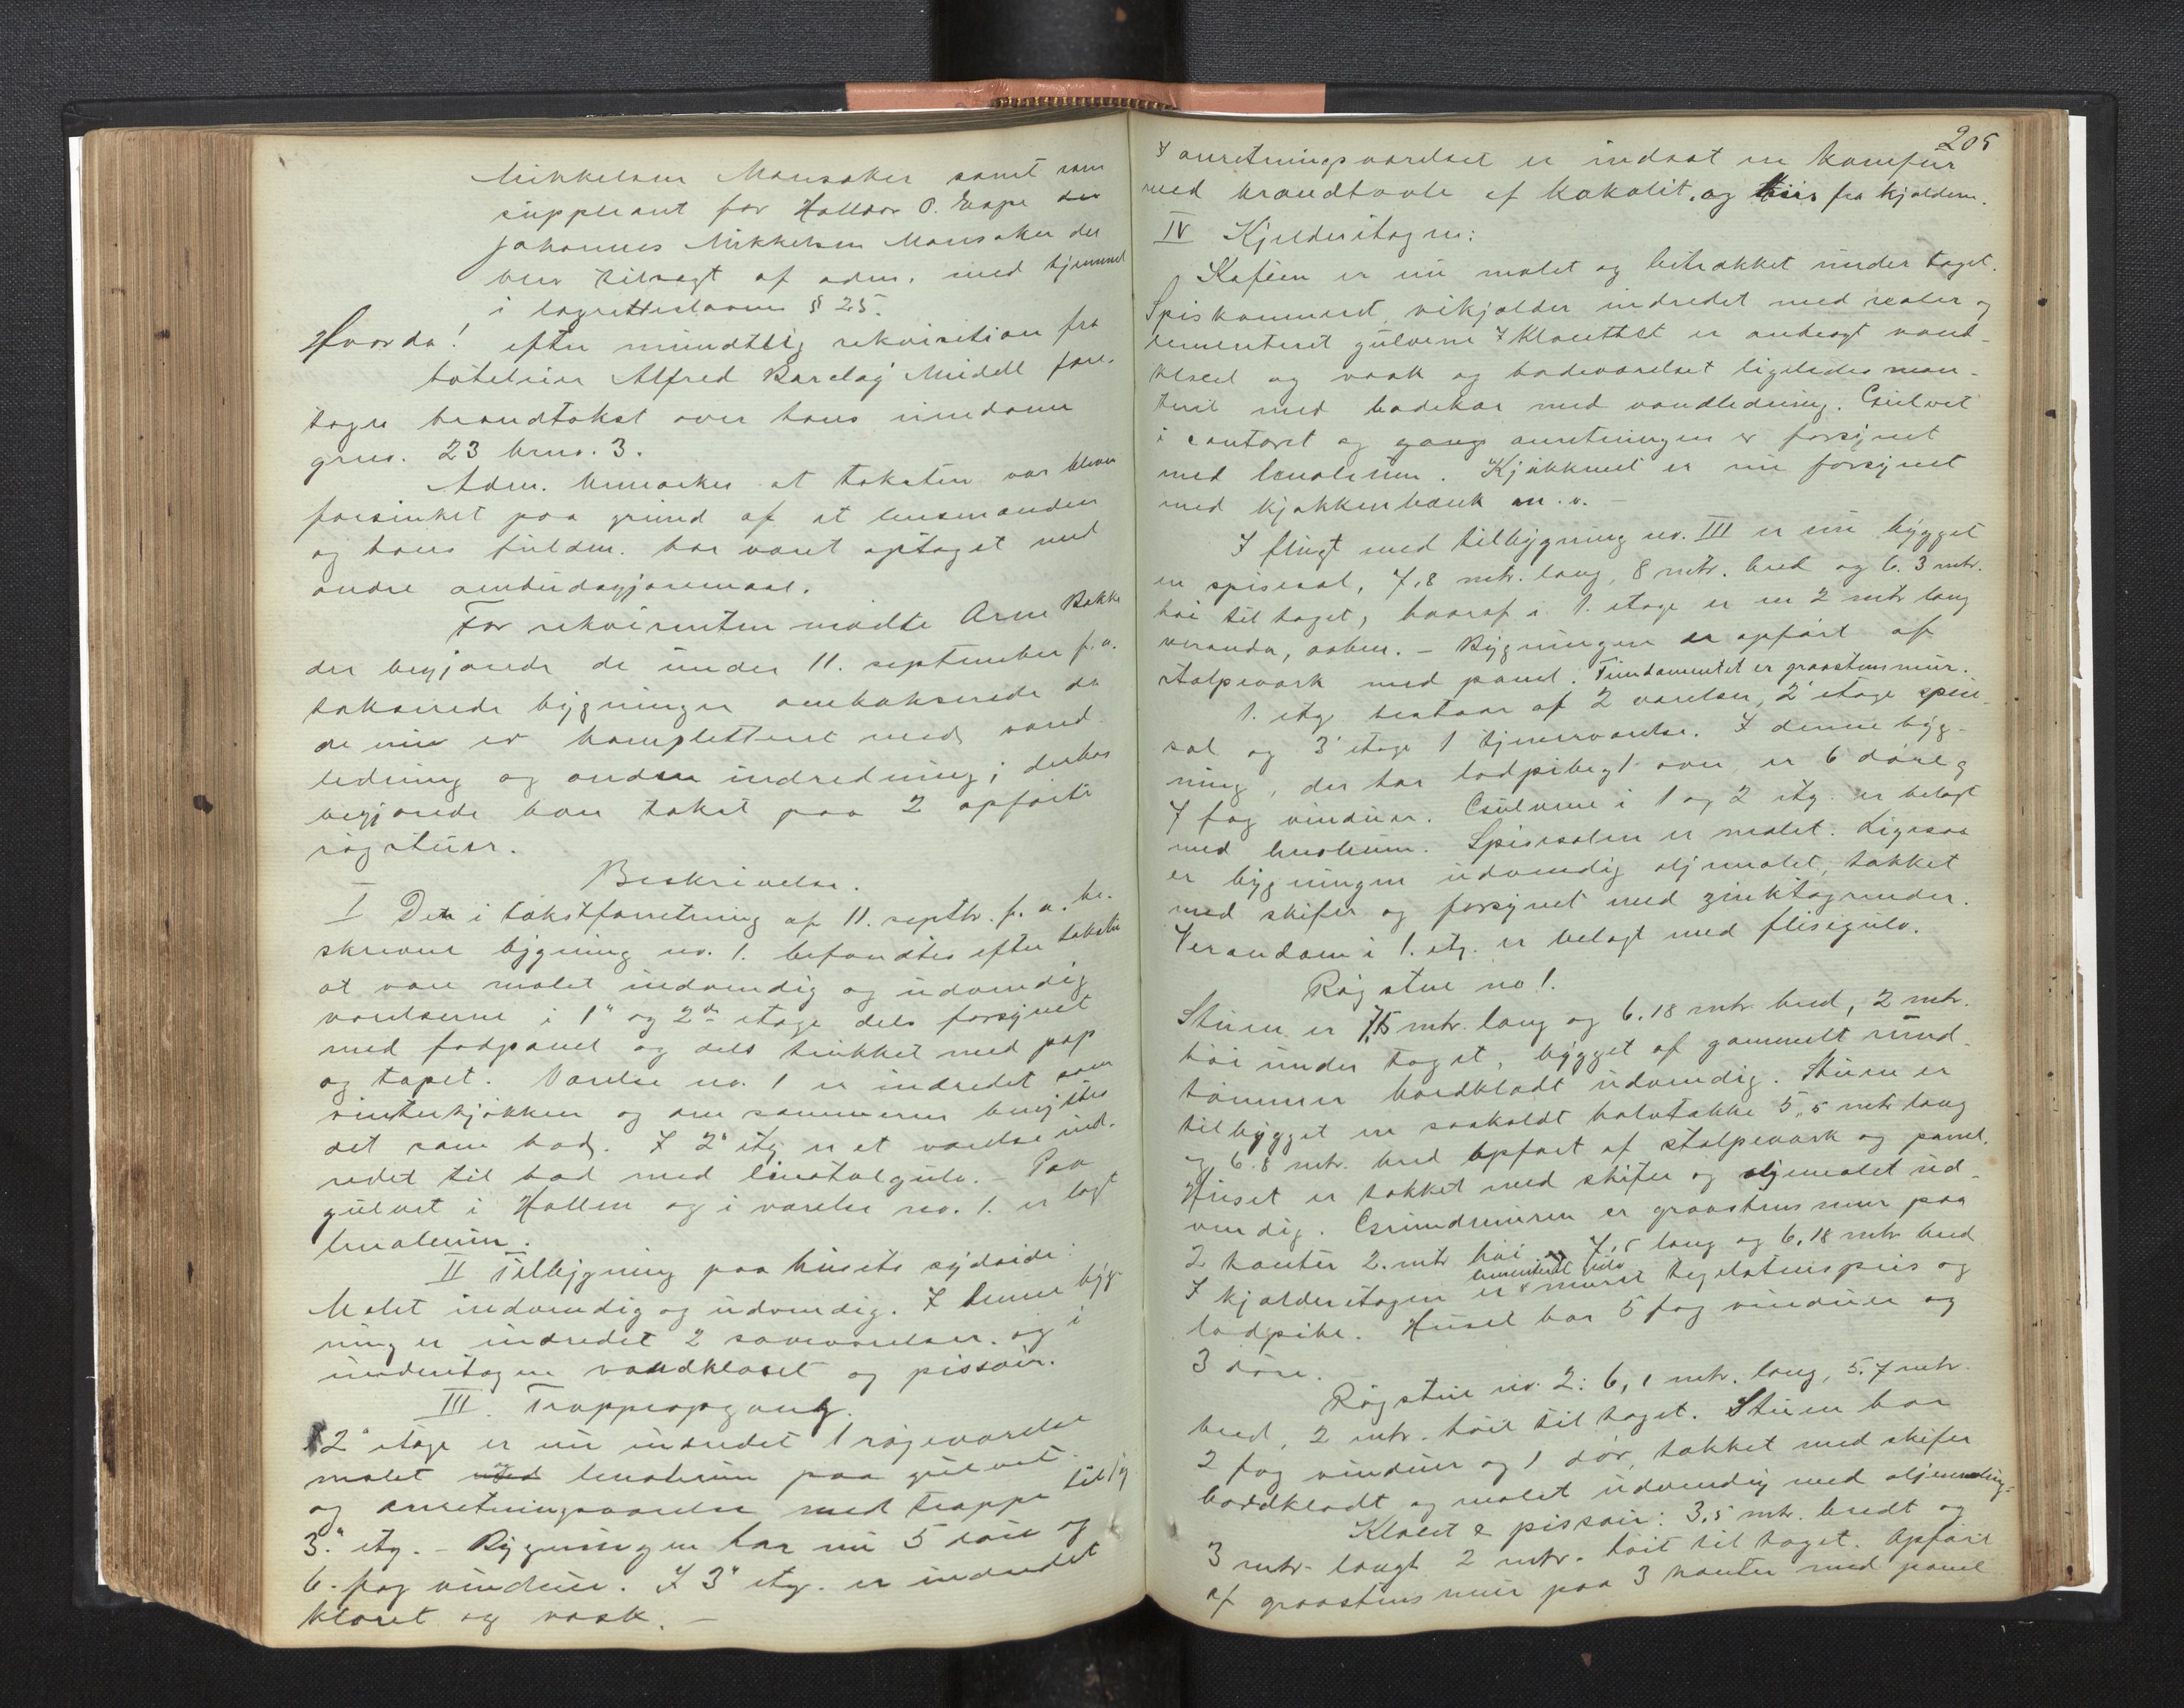 Mikkelsen Mansaker samt som
suppleant for Halldor O. Espe
Johannes Mikkelsen Mansaker der
blev tilsagt af adm. med hjemmel
i lagretteloven § 25.
Hvorda! efter mundtlig rekvisition fra
hoteleier Alfred Barclay Midell fore-
toges brandtakst over hans eiendom
gnr. 23 brno. 3.
Adm. bemærker at taksten var bleven
forsinket paa grund af at lensmanden
og hans fuldm. har været optaget med
andre ombudsgjøremaal.
For rekvirenten mødte Arne Bakke
der begjærede de under 11. september f. a.
takserede bygninger omtakserede da
de nu er kompletteret med vand-
ledning og anden indredning; derhos
begjærede han takst paa 2 opførte
røgstuer.
Beskrivelse.
I Den i takstforretning af 11. septbr. f. a. be-
skrevne bygning no. 1. befandtes efter taksten
at være malet indvendig og udvendig
værelserne i 1" og 2den etage dels forsynet
med fodpanel og dels trukket med pap
og tapet. Værelse no. 1 er indredet som
vinterkjøkken og om sommeren benyttes
det som bad. I 2" etg er et værelse ind-
redet til bad med gulv. - Paa
gulvet i Hallen og i værelse no. 1. er lagt
linoleum.
II Tilbygning paa husets sydside:
Malet indvendig og udvendig. I denne byg-
ning er indredet 2 soveværelser. og i
underetagen vandkloset og pissoir.
III. Trappeopgang.
2" etage er nu indredet 1 røgeværelse
malet med linoleum paa gulvet.
og anretningsværelse med trappe til
3." etg. - Bygningen har nu 5 døre og
6. fag vinduer. I 3" etg. er indredet
kloset og vask. -
205
I anretningsværelset er indsat en komfur
med brandtavle af kakalit. og heis fra kjælderen.
IV Kjælderetagen:
Kaféen er nu malet og betrækket under taget.
Spiskammeret, vikjælder indredet med reoler og
cementeret gulvene I Klosettet er anbragt vand-
klosed og vask og badeværelset ligeledes mon-
teret med badekar med vandledning. Gulvet
i contoret og gangs anretningen er forsynet
med linoleum. Kjøkkenet er nu forsynet
med kjøkkenbænk m. v. -
I flugt med tilbygning no. III er nu bygget
en spisesal, 7,8 mtr. lang, 8 mtr. bred og 6.3 mtr.
høi til taget, hvoraf i 1. etage er en 2 mtr lang
veranda, aaben. - Bygningen er opført af
stolpeværk med panel. Fundamentet er graastensmur.
1. etg bestaar af 2 værelser, 2' etage spise-
sal og 3' etage 1 tjenerværelse. I denne byg-
ning, der har lodpibe, er 6 døre og
7 fag vinduer. Gulvene i 1 og 2 etg. er belagt
med linoleum. Spisesalen er malet. Ligesaa
er bygningen udvendig oljemalet, tækket
med skifer og forsynet med zinktagrender.
Verandaen i 1. etg. er belagt med flisegulv.
Røgstue no 1.
Stuen er 7,5 mtr. lang og 6.18 mtr bred, 2 mtr.
høi under taget, bygget af gammelt rund-
tømmer bordklædt udvendig. Stuen er
tilbygget en saakaldt halvtække 5,5 mtr lang
og 6.8 mtr. bred opført af stolpeværk og panel.
Huset er tækket med skifer og oljemalet ud-
vendig. Grundmuren er graastensmur paa
2 kanter 2. mtr høi og 7,5 lang og 6,18 mtr bred
cementert gulv
I kjælderetagen er muret teglstenspeis og
lodpibe. Huset har 5 fag vinduer og
3 døre.
Røgstue no. 2: 6,1 mtr. lang, 5.7 mtr.
bred, 2 mtr. høit til taget. Stuen har
2 fag vinduer og 1 dør, tækket med skifer
bordklædt og malet udvendig med oljemaling.
Kloset & pissoir: 3,5 mtr. bredt og
3 mtr. langt 2 mtr. høit til taget. Opført
af graastensmur paa 3 kanter med panel